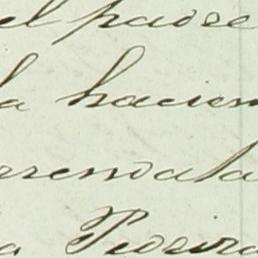 el padre
la hacien
arendala
la Piedra